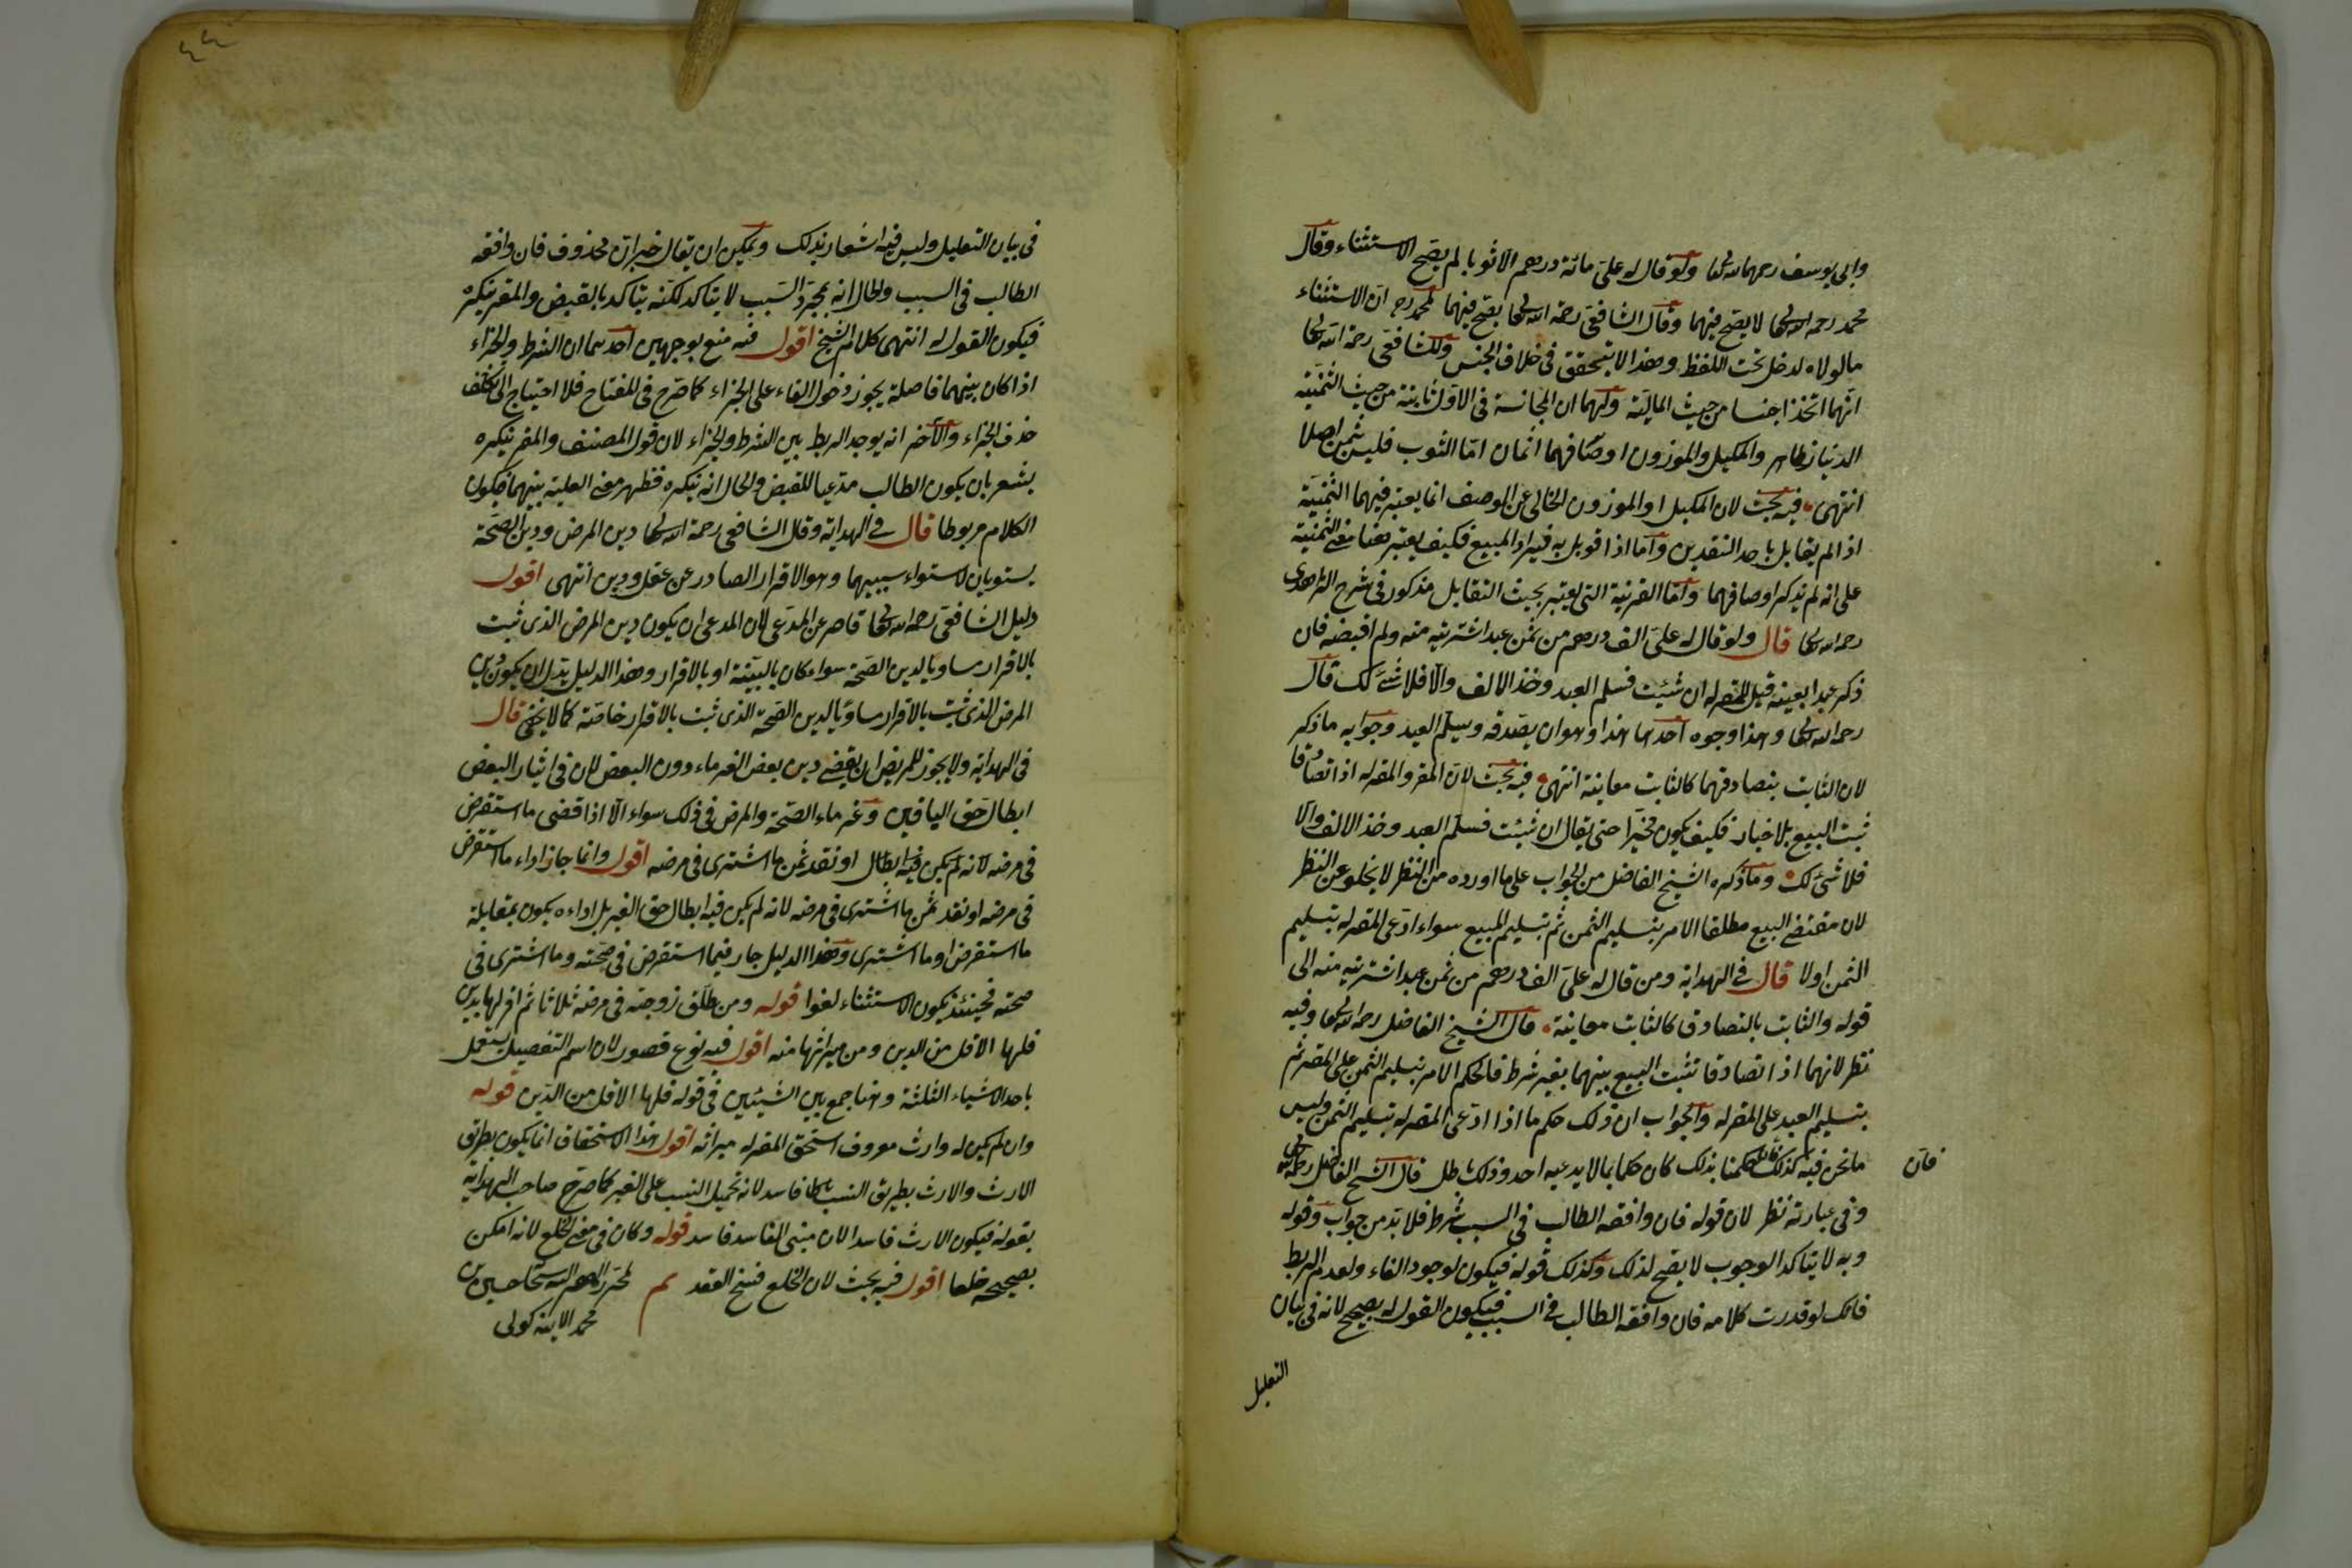 وابي يوسف رحمهما الله تعالى ولو قال له علي مائة درهم الا ثوبا لم يصح الاستثناء وقال
محمد رحمه الله تعالى لا يصح فيهما وقال الشافعي رحمة الله تعالى يصح فيهما لمحمد رح ان الاستثناء
مالولاه لدخل تحت اللفظ وهذا لا يتحقق في خلاف الجنس وللشافعي رحمة الله تعالى
انهما اتخذا جنسا من حيث المالية ولهما ان المجانسة في الاول ثابتة من حيث الثمنية
الدنيا ظاهر والمكيل والموزون اوصافهما اثمان اما الثوب فليس بثمن اصلا
انتهى فيه بحث لان المكيل او الموزون الخالي عن الوصف انما يعتبر فيهما الثمنية
اذا لم يقابل باحد النقدين واما اذا قوبل به فيراد المبيع فكيف يعتبر هنا معنى الثمنية
على انه لم يذكر اوصافهما واما القرينة التي يعتبر بحيث التقابل مذكور في شرح الزاهدي
رحمه الله تعالى قال ولو قال له علي الف درهم من ثمن عبد اشتريته منه ولم اقبضه فان
ذكر عبدا بعينه قيل للمقر له ان شئت فسلم العبد وخذ الالف والا فلا شيء لك قال
رحمه الله تعالى وهذا وجوه احدها هذا وهو ان يصدقه ويسلم العبد وجوابه ما ذكر
لان الثابت بتصادقهما كالثابت معاينة انتهى فيه بحث لان المقر والمقر له اذا تصادقا
ثبت البيع بلا خيار فكيف يكون مخيرا حتى يقال ان شئت فسلم العبد وخذ الالف والا
فلا شيء لك وما ذكره الشيخ الفاضل من الجواب على ما اورده من النظر لا يخلو عن النظر
لان مقتضى البيع مطلقا الامر بتسليم الثمن ثم بتسليم المبيع سواء ادعى المقر له بتسليم
الثمن اولا قال في الهداية ومن قال له علي الف درهم من ثمن عبد اشتريته منه الى
قوله والثابت بالتصادق كالثابت معاينة قال الشيخ الفاضل رحمه الله تعالى وفيه
نظر لانهما اذا تصادقا تثبت البيع بينهما بغير شرط فالحكم الامر بتسليم الثمن على المقر ثم
بتسليم العبد على المقر له والجواب ان ذلك حكم ما اذا ادعى المقر له تسليم الثمن وليس
ما نحن فيه كذلك فلو حكمنا بذلك كان حكما بما لا يدعيه احد وذلك باطل قال الشيخ الفاضل رحمه الله
فان
وفي عبارته نظر لان قوله فان وافقه الطالب في السبب شرط فلا بد من جواب وقوله
وبه لا يتاكد الوجوب لا يصح لذلك وكذلك قوله فيكون لوجود الفاء ولعدم الربط
فانك لو قدرت كلامه فان وافقه الطالب في السبب فيكون القول له يصح لانه في بيان
التعليل
٤٤
في بيان التعليل وليس فيه اشعار بذلك ويمكن ان يقال خبر ان محذوف فان وافقه
الطالب في السبب والحال انه بمجرد السبب لا يتاكد لكنه يتاكد بالقبض والمقر ينكره
فيكون القول له انتهى كلام الشيخ اقول فيه منع بوجهين احدهما ان الشرط والجزاء
اذا كان بينهما فاصلة يجوز دخول الفاء على الجزاء كما صرح في المفتاح فلا احتياج الى تكلف
حذف الجزاء والآخر انه يوجد الربط بين الشرط والجزاء لان قول المصنف والمقر ينكره
يشعر بان يكون الطالب مدعيا للقبض والحال انه ينكره فظهر معنى العلية بينهما فيكون
الكلام مربوطا قال في الهداية وقال الشافعي رحمة الله تعالى دين المرض ودين الصحة
يستويان لاستواء سببهما وهو الاقرار الصادر عن عقل ودين انتهى اقول
دليل الشافعي رحمه الله تعالى قاصر عن المدعى لان المدعى ان يكون دين المرض الذي ثبت
بالاقرار مساويا لدين الصحة سواء كان بالبينة او بالاقرار وهذا الدليل يدل ان يكون دين
المرض الذي ثبت بالاقرار مساويا لدين الصحة الذي ثبت بالاقرار خاصة كما لا يخفى قال
في الهداية ولا يجوز للمريض ان يقضي دين بعض الغرماء دون البعض لان في ايثار البعض
ابطال حق الباقين وغرماء الصحة والمرض في ذلك سواء الا اذا قضى ما استقرض
في مرضه لانه لم يكن فيه ابطال او نقد ثمن ما اشترى في مرضه اقول وانما جاز اداء ما استقرض
في مرضه او نقد ثمن ما اشترى في مرضه لانه لم يكن فيه ابطال حق الغير بل اداءه يكون بمقابلة
ما استقرض او ما اشترى وهذا الدليل جار فيما استقرض في صحته وما اشترى في
صحته فحينئذ يكون الاستثناء لغوا قوله ومن طلق زوجته في مرضه ثلاثا ثم اقر لها بدين
فلها الاقل من الدين ومن ميراثها منه اقول فيه نوع قصور لان اسم التفضيل يستعمل
باحد الاشياء الثلثة وهنا جمع بين الشيئين في قوله فلها الاقل من الدين قوله
وان لم يكن له وارث معروف استحق المقر له ميراثه اقول هذا الاستحقاق انما يكون بطريق
الارث والارث بطريق النسب باطل فاسد لانه تحميل النسب على الغير كما صرح صاحب الهداية
بقوله فيكون الارث فاسدا لان مبنى الفاسد فاسد قوله وكان في معنى الخلع لانه امكن
تصحيحه خلعا اقول فيه بحث لان الخلع فسخ العقد تم
محمد الاينه كولي